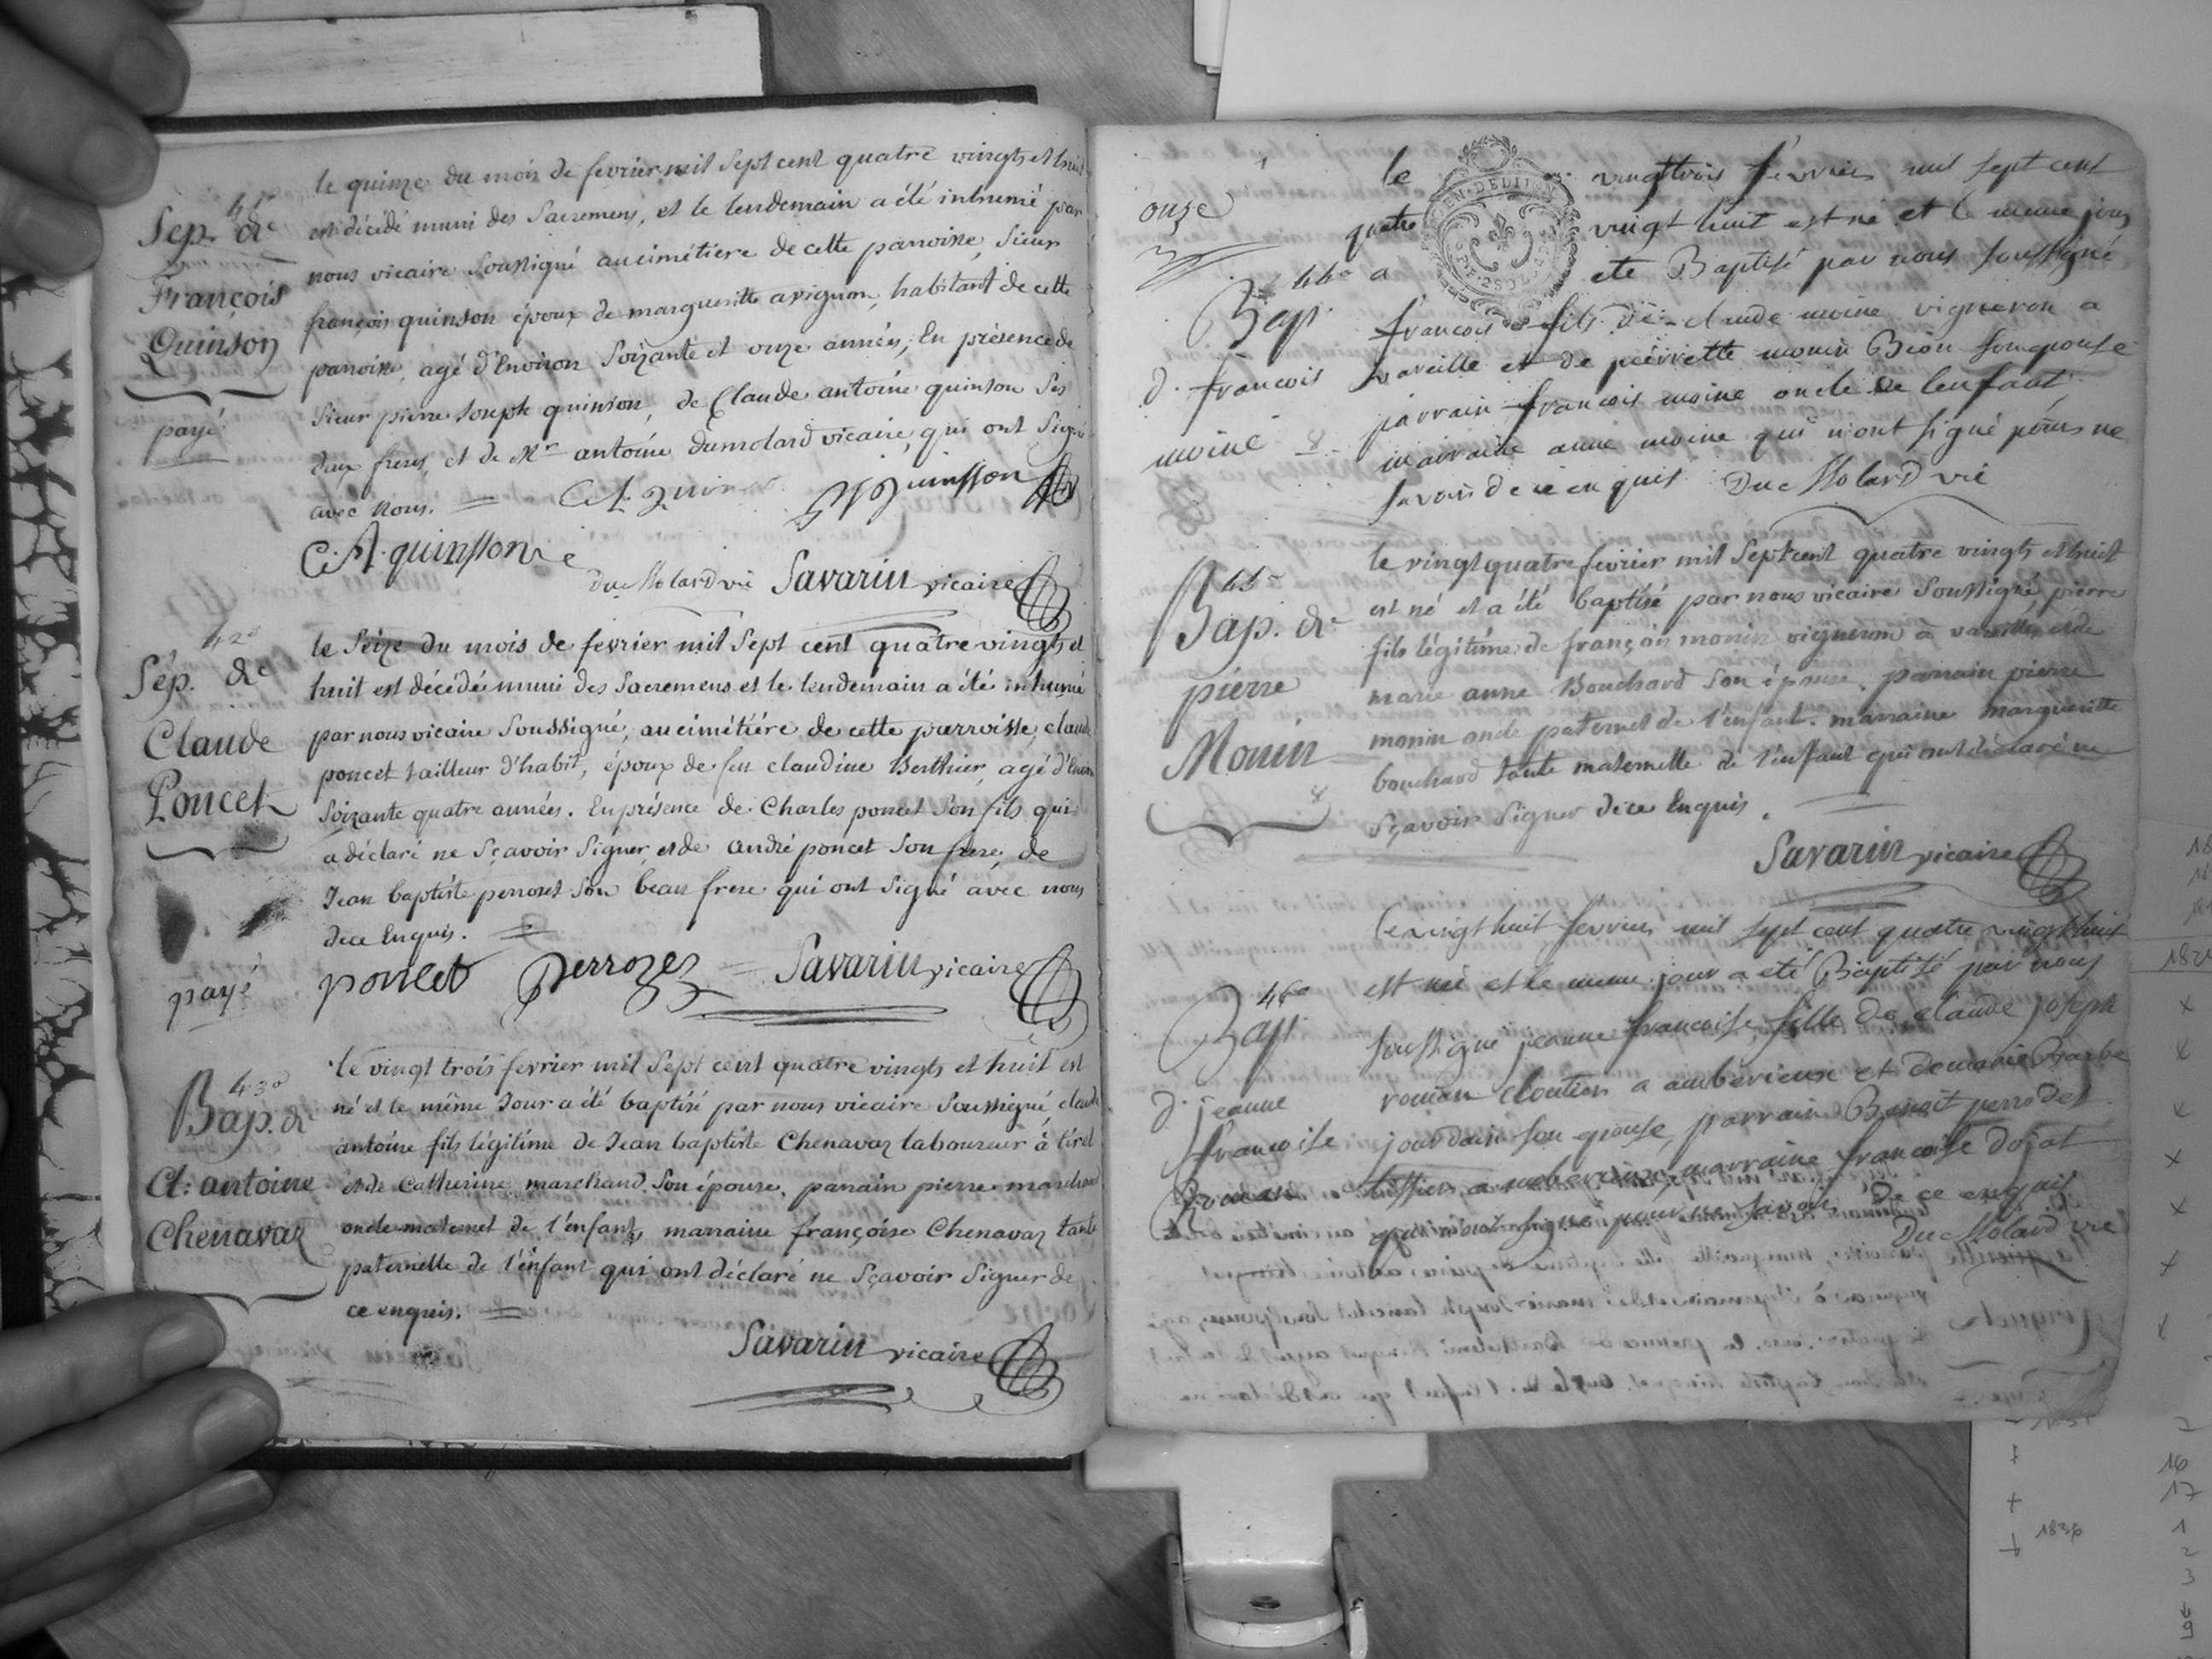 41e
Sep. de
François
Quinson
payé
le quinze du mois de fevrier mil Sept cent quatre vingts et huit
est décédé muni des Sacremens, et le lendemain a été inhumé par
nous vicaire Soussigné au cimétiere de cette paroisse, Sieur
françois quinson époux de margueritte avignon, habitant de cette
paroisse, agé d'Environ Soixante et onze années, En présence de
Sieur pierre Joseph quinson, de Claude antoine quinson Ses
deux freres, et de Mr antoine dumolard vicaire, qui ont Signé
avec Nous.
quinsson
C. A. quinsson
duMolard vic Savarin vicaire
42e
Sép. de
Claude
Poncet
payé
le Seize du mois de fevrier mil Sept cent quatre vingts et
huit est décédé muni des Sacremens et le lendemain a été inhumé
par nous vicaire Soussigné, au cimétiére de cette parroisse, claude
poncet tailleur d'habit, époux de feu claudine Berthier, agé d'Environ
Soixante quatre années. En présence de Charles poncet Son fils qui
a déclaré ne Sçavoir Signer, et de andré poncet Son frere, de
Jean baptiste perroset Son beau frere qui ont Signé avec nous
de ce Enquis.
poncet Perrozet Savarin vicaire
43e
Bap. de
Cl: antoine
Chenavaz
le vingt trois fevrier mil Sept cent quatre vingts et huit est
né et le même Jour a été baptisé par nous vicaire Soussigné claude
antoine fils légitime de Jean baptiste Chenavaz laboureur à tiret
et de Catherine marchand Son épouse, parrain pierre marchand
oncle maternel de l'enfant, marraine françoise Chenavaz tante
paternelle de l'enfant qui ont déclaré ne Sçavoir Signer de
ce enquis.
Savarin vicaire
onze
44e
Bap.
d. francois
moine
le vingttrois fevrier mil sept cent
quatre vingt huit est né et le meme jour
a ete Baptisé par nous soussigné
francois fils de claude moine vigneron a
vareille et de pierrette monin Bion son epouse
parrain francois moine oncle de lenfant
marraine anne moine qui n'ont signé pour ne
savoir de ce enquis DuMolard vic
45e
Bap. de
pierre
Monin
le vingt quatre fevrier mil Sept cent quatre vingts et huit
est né et a été baptisé par nous vicaire Soussigné pierre
fils légitime de françois monin vigneron a vareilles et de
marie anne Bouchard Son épouse. parrain pierre
monin oncle paternel de l'enfant. marraine margueritte
bouchard tante maternelle de l'enfant qui ont déclaré ne
Sçavoir Signer de ce Enquis.
Savarin vicaire
46e
Bap
d. jeanne
francoise
Roman
le vingt huit fevrier mil sept cent quatre vingt huit
est né et le meme jour a eté Baptisé par nous
soussigné jeanne francoise fille de claude joseph
roman cloutier a amberieux et de marie Barbe
jourdain son epouse, parrain Benoit perrodet
tissier a amberieux, marraine francoise dojat
qui n'ont signé pour ne savoir de ce enquis
DuMolard vic